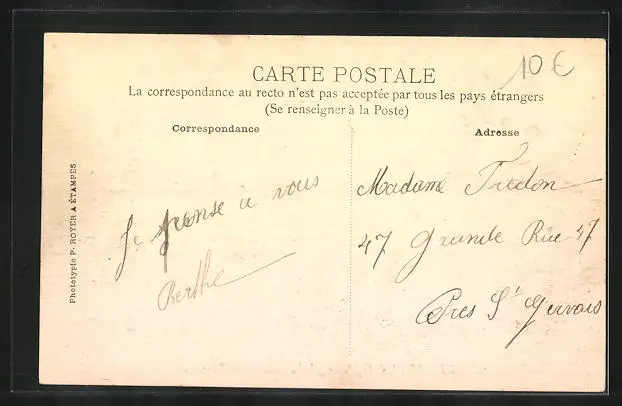 10€
CARTE POSTALE
La correspondance au recto n'est pas acceptée par tous les pays étrangers
(Se renseigner à la Poste)
Correspondance
Adresse
Je pense a vous
Berthe
Madame Tredon
47 Grande Rue 47
Pres St Gervais
Phototypie P. ROYER A ÉTAMPES